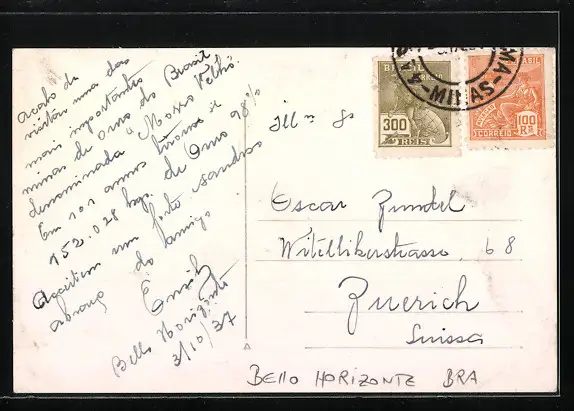 Acabo de
visitar uma das
mais importantes
minas de ouro do Brasil
denominada "Morro Velho"
Em 101 annos trouxe a
152.028 kgs. de Ouro 98%
Acceitem um forte
abraço do amigo
Emil
Bello Horizonte
3/10/37
Illmo Sr
Oscar Zundel
Witellikerstrasse, 68
Zuerich
Suissa
BRASIL
CORREIO
300
REIS
BRASIL
100
RS
CORREIO
MINAS
BELLO HORIZONTE BRA